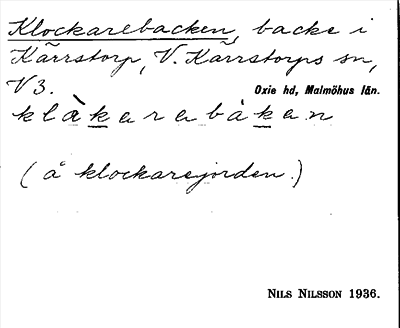 Klockarebacken, backe i
Kärrstorp, V. Kärrstorps sn,
V3. Oxie hd, Malmöhus län.
klàkarabàkan
(å klockarejorden.)
NILS NILSSON 1936.